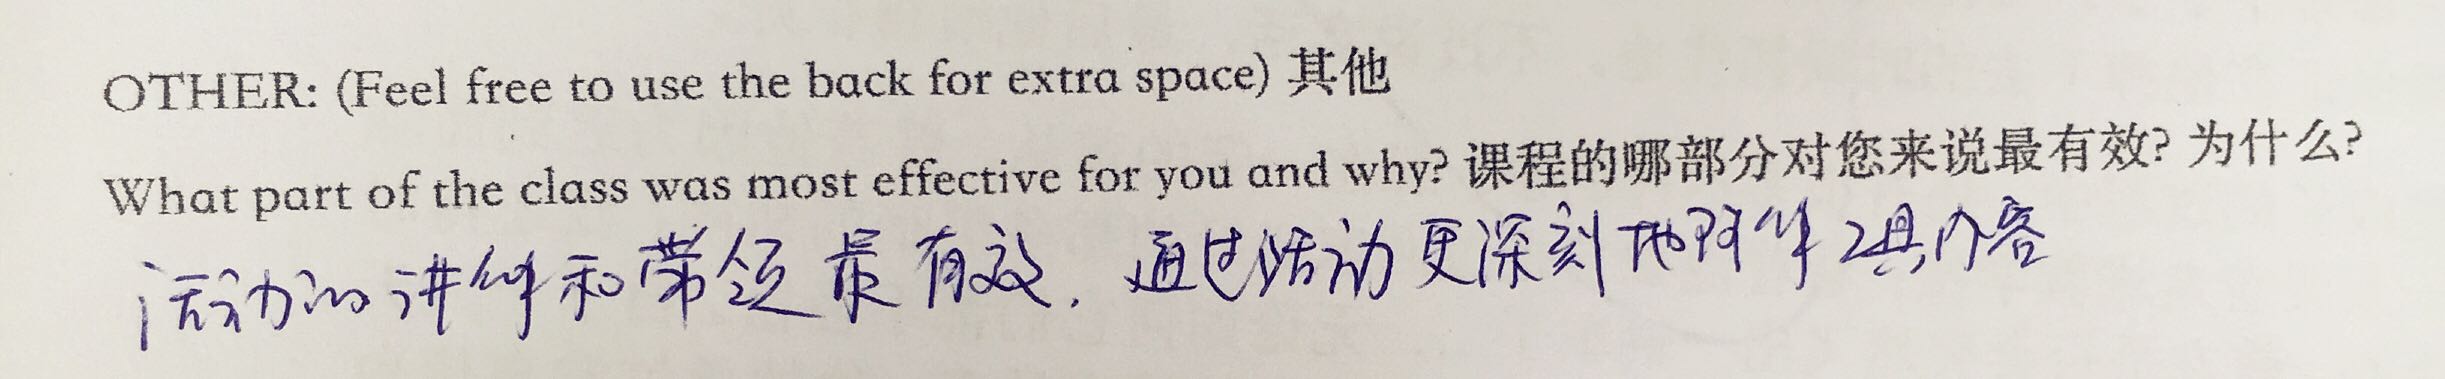 OTHER: (Feel free to use the back for extra space) 其他
What part of the class was most effective for you and why? 课程的哪部分对您来说最有效? 为什么?
活动的讲解和带领最有效. 通过活动更深刻地理解了其内容